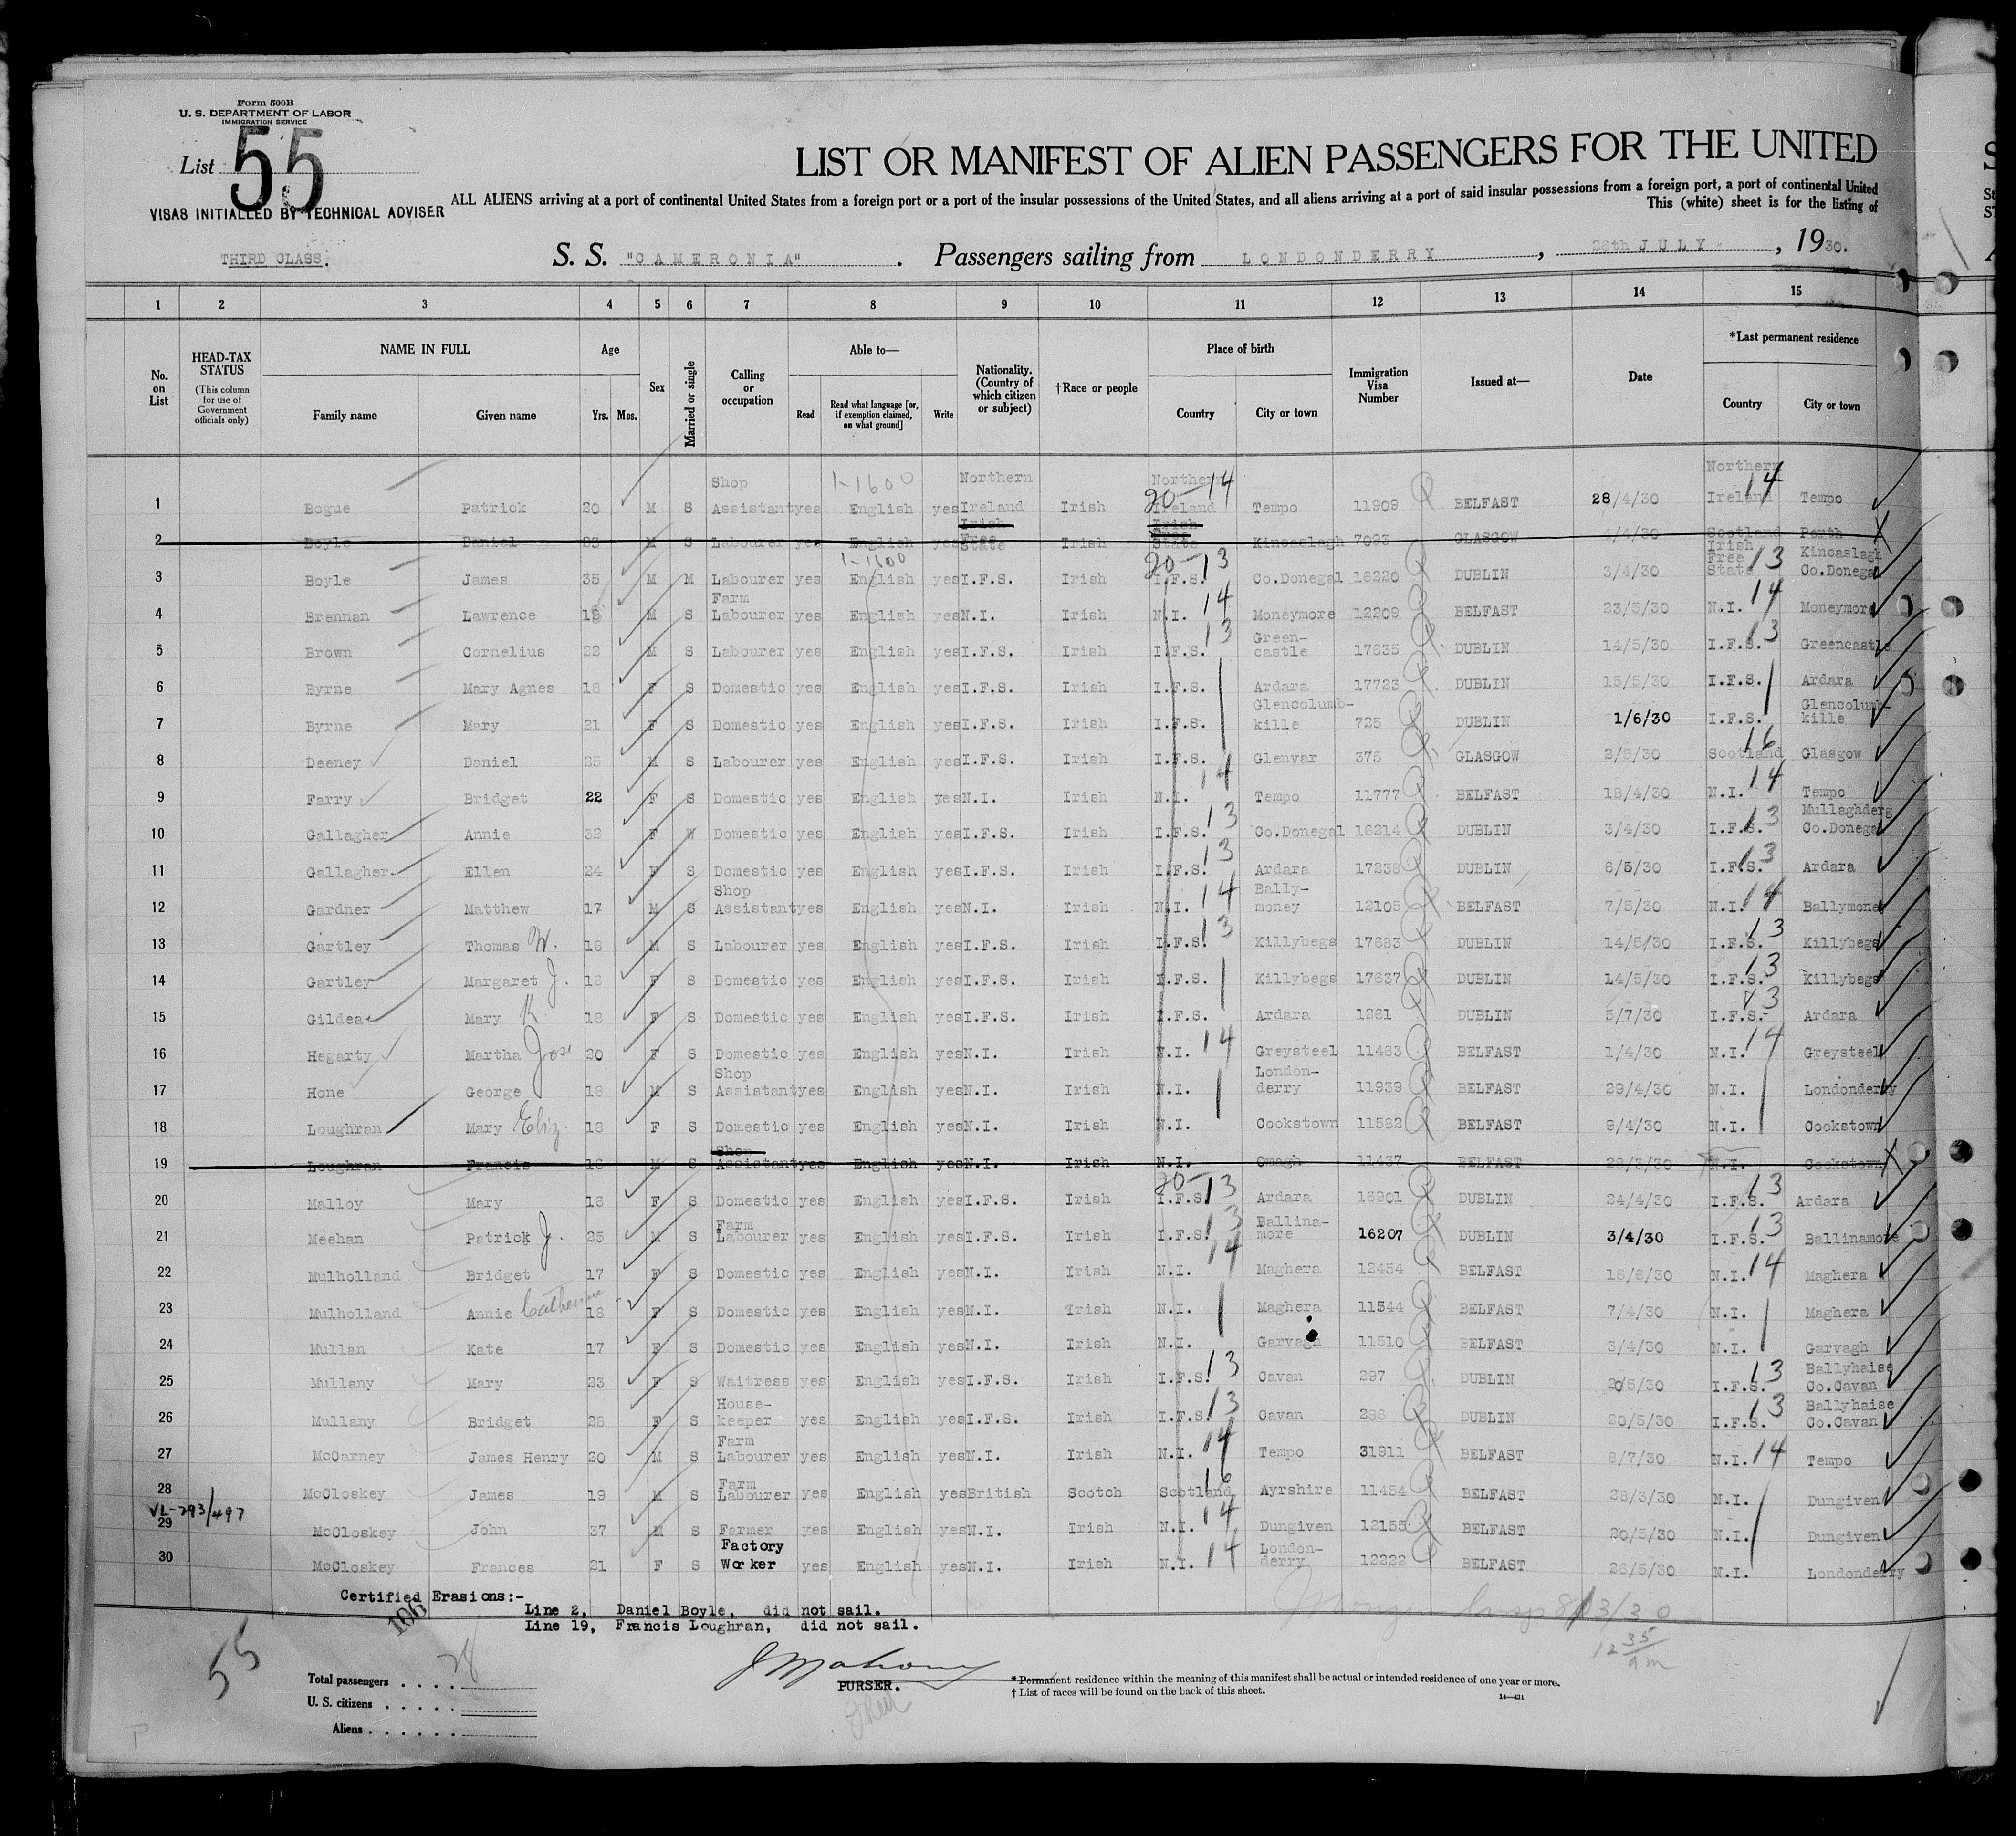 Form 500B
U. S. DEPARTMENT OF LABOR
IMMIGRATION SERVICE
List 55
VISAS INITIALLED BY TECHNICAL ADVISER
LIST OR MANIFEST OF ALIEN PASSENGERS FOR THE UNITED
ALL ALIENS arriving at a port of continental United States from a foreign port or a port of the insular possessions of the United States, and all aliens arriving at a port of said insular possessions from a foreign port, a port of continental United
This (white) sheet is for the listing of
THIRD CLASS. S. S. "CAMERONIA" . Passengers sailing from LONDONDERRY , 26th JULY , 1930.
1 2 3 4 5 6 7 8 9 10 11 12 13 14 15
No. on List
HEAD-TAX STATUS (This column for use of Government officials only)
NAME IN FULL Family name Given name
Age Yrs. Mos.
Sex
Married or single
Calling or occupation
Able to— Read Read what language [or, if exemption claimed, on what ground] Write
Nationality. (Country of which citizen or subject)
†Race or people
Place of birth Country City or town
Immigration Visa Number
Issued at—
Date
*Last permanent residence Country City or town
1 Bogue Patrick 20 M S Shop Assistant yes 1-1600 English yes Northern Ireland Irish Northern Ireland 20-14 Tempo 11909 BELFAST 28/4/30 Northern Ireland 14 Tempo
2 Boyle Daniel 23 M S Labourer yes English yes Irish Free State Irish Irish Free State Kincaslagh 7093 GLASGOW 4/4/30 Scotland Perth
3 Boyle James 35 M M Labourer yes 1-1600 English yes I.F.S. Irish I.F.S. 20-13 Co.Donegal 16220 DUBLIN 3/4/30 Irish Free State 13 Kincaslagh Co.Donegal
4 Brennan Lawrence 18 M S Farm Labourer yes English yes N.I. Irish N.I. 14 Moneymore 12209 BELFAST 23/5/30 N.I. 14 Moneymore
5 Brown Cornelius 22 M S Labourer yes English yes I.F.S. Irish I.F.S. 13 Green-castle 17635 DUBLIN 14/5/30 I.F.S. 13 Greencastle
6 Byrne Mary Agnes 18 F S Domestic yes English yes I.F.S. Irish I.F.S. Ardara 17723 DUBLIN 15/5/30 I.F.S. Ardara
7 Byrne Mary 21 F S Domestic yes English yes I.F.S. Irish I.F.S. Glencolumb-kille 725 DUBLIN 1/6/30 I.F.S. Glencolumb-kille
8 Deeney Daniel 25 M S Labourer yes English yes I.F.S. Irish I.F.S. Glenvar 375 GLASGOW 2/5/30 Scotland 16 Glasgow
9 Farry Bridget 22 F S Domestic yes English yes N.I. Irish N.I. 14 Tempo 11777 BELFAST 18/4/30 N.I. 14 Tempo
10 Gallagher Annie 32 F W Domestic yes English yes I.F.S. Irish I.F.S. 13 Co.Donegal 16214 DUBLIN 3/4/30 I.F.S. 13 Mullaghderg Co.Donegal
11 Gallagher Ellen 24 F S Domestic yes English yes I.F.S. Irish I.F.S. 13 Ardara 17238 DUBLIN 6/5/30 I.F.S. 13 Ardara
12 Gardner Matthew 17 M S Shop Assistant yes English yes N.I. Irish N.I. 14 Bally-money 12105 BELFAST 7/5/30 N.I. 14 Ballymoney
13 Gartley Thomas W. 18 M S Labourer yes English yes I.F.S. Irish I.F.S. 13 Killybegs 17683 DUBLIN 14/5/30 I.F.S. 13 Killybegs
14 Gartley Margaret J. 16 F S Domestic yes English yes I.F.S. Irish I.F.S. Killybegs 17637 DUBLIN 14/5/30 I.F.S. 13 Killybegs
15 Gildea Mary K. 18 F S Domestic yes English yes I.F.S. Irish I.F.S. Ardara 1261 DUBLIN 5/7/30 I.F.S. 13 Ardara
16 Hegarty Martha Jose 20 F S Domestic yes English yes N.I. Irish N.I. 14 Greysteel 11483 BELFAST 1/4/30 N.I. 14 Greysteel
17 Hone George 18 M S Shop Assistant yes English yes N.I. Irish N.I. London-derry 11939 BELFAST 29/4/30 N.I. Londonderry
18 Loughran Mary Eliz. 18 F S Domestic yes English yes N.I. Irish N.I. Cookstown 11582 BELFAST 9/4/30 N.I. Cookstown
19 Loughran Francis 16 M S Shop Assistant yes English yes N.I. Irish N.I. Omagh 11437 BELFAST 28/3/30 N.I. Cookstown
20 Malloy Mary 18 F S Domestic yes English yes I.F.S. Irish I.F.S. 20-13 Ardara 16901 DUBLIN 24/4/30 I.F.S. 13 Ardara
21 Meehan Patrick J. 25 M S Farm Labourer yes English yes I.F.S. Irish I.F.S. 13 Ballina-more 16207 DUBLIN 3/4/30 I.F.S. 13 Ballinamore
22 Mulholland Bridget 17 F S Domestic yes English yes N.I. Irish N.I. 14 Maghera 12454 BELFAST 16/6/30 N.I. 14 Maghera
23 Mulholland Annie Catherine 18 F S Domestic yes English yes N.I. Irish N.I. Maghera 11544 BELFAST 7/4/30 N.I. Maghera
24 Mullan Kate 17 F S Domestic yes English yes N.I. Irish N.I. Garvagh 11510 BELFAST 3/4/30 N.I. Garvagh
25 Mullany Mary 23 F S Waitress yes English yes I.F.S. Irish I.F.S. 13 Cavan 297 DUBLIN 20/5/30 I.F.S. 13 Ballyhaise Co.Cavan
26 Mullany Bridget 28 F S House-keeper yes English yes I.F.S. Irish I.F.S. 13 Cavan 298 DUBLIN 20/5/30 I.F.S. 13 Ballyhaise Co.Cavan
27 McCarney James Henry 20 M S Farm Labourer yes English yes N.I. Irish N.I. 14 Tempo 31911 BELFAST 8/7/30 N.I. 14 Tempo
28 McCloskey James 19 M S Farm Labourer yes English yes British Scotch Scotland 16 Ayrshire 11454 BELFAST 28/3/30 N.I. Dungiven
VL-293/497
29 McCloskey John 37 M S Farmer yes English yes N.I. Irish N.I. 14 Dungiven 12155 BELFAST 20/5/30 N.I. Dungiven
30 McCloskey Frances 21 F S Factory Worker yes English yes N.I. Irish N.I. 14 London-derry 12222 BELFAST 26/5/30 N.I. Londonderry
Certified Erasions:-
Line 2, Daniel Boyle, did not sail.
Line 19, Francis Loughran, did not sail.
106
55
8/3/30
12 35 am
Total passengers . . . . 28
U. S. citizens . . . . .
Aliens . . . . . .
J Mahony
PURSER.
* Permanent residence within the meaning of this manifest shall be actual or intended residence of one year or more.
† List of races will be found on the back of this sheet.
14—421